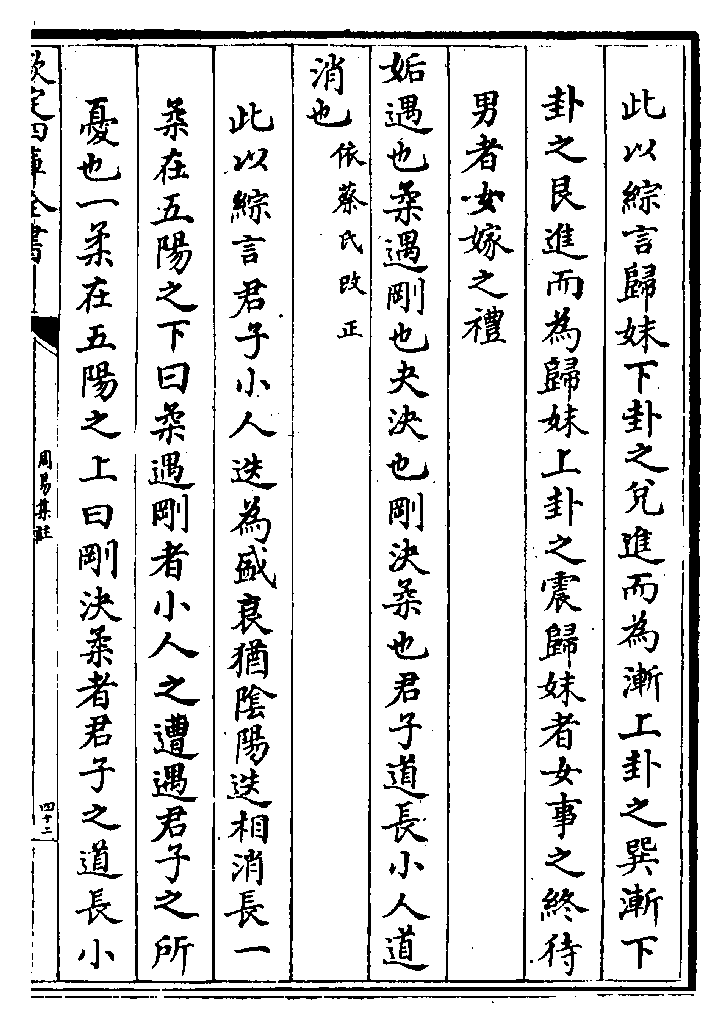 此以綜言歸妹下卦之兌進而為漸上卦之巽漸下
卦之艮進而為歸妹上卦之震歸妹者女事之終待
男者女嫁之禮
姤遇也柔遇剛也夬決也剛決柔也君子道長小人道
消也依蔡氏改正
此以綜言君子小人迭為盛衰猶陰陽迭相消長一
柔在五陽之下曰柔遇剛者小人之遭遇君子之所
憂也一柔在五陽之上曰剛決柔者君子之道長小
欽定四庫全書
周易集註
四十二